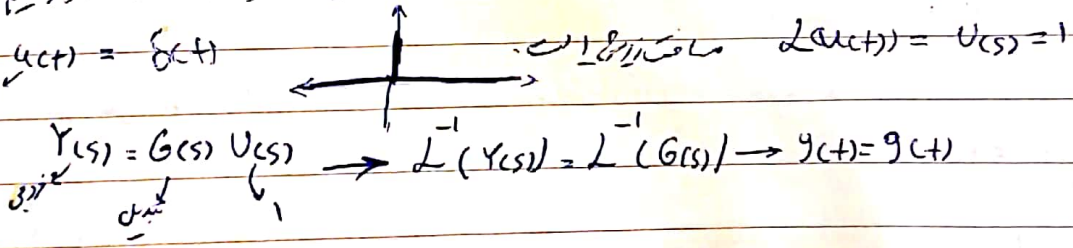 u(t) = δ(t) مساحت زیرش 1 است. L(u(t)) = U(s) = 1
Y(s) = G(s) U(s) → L⁻¹(Y(s)) = L⁻¹(G(s)) → y(t) = g(t)
تبدیل 1